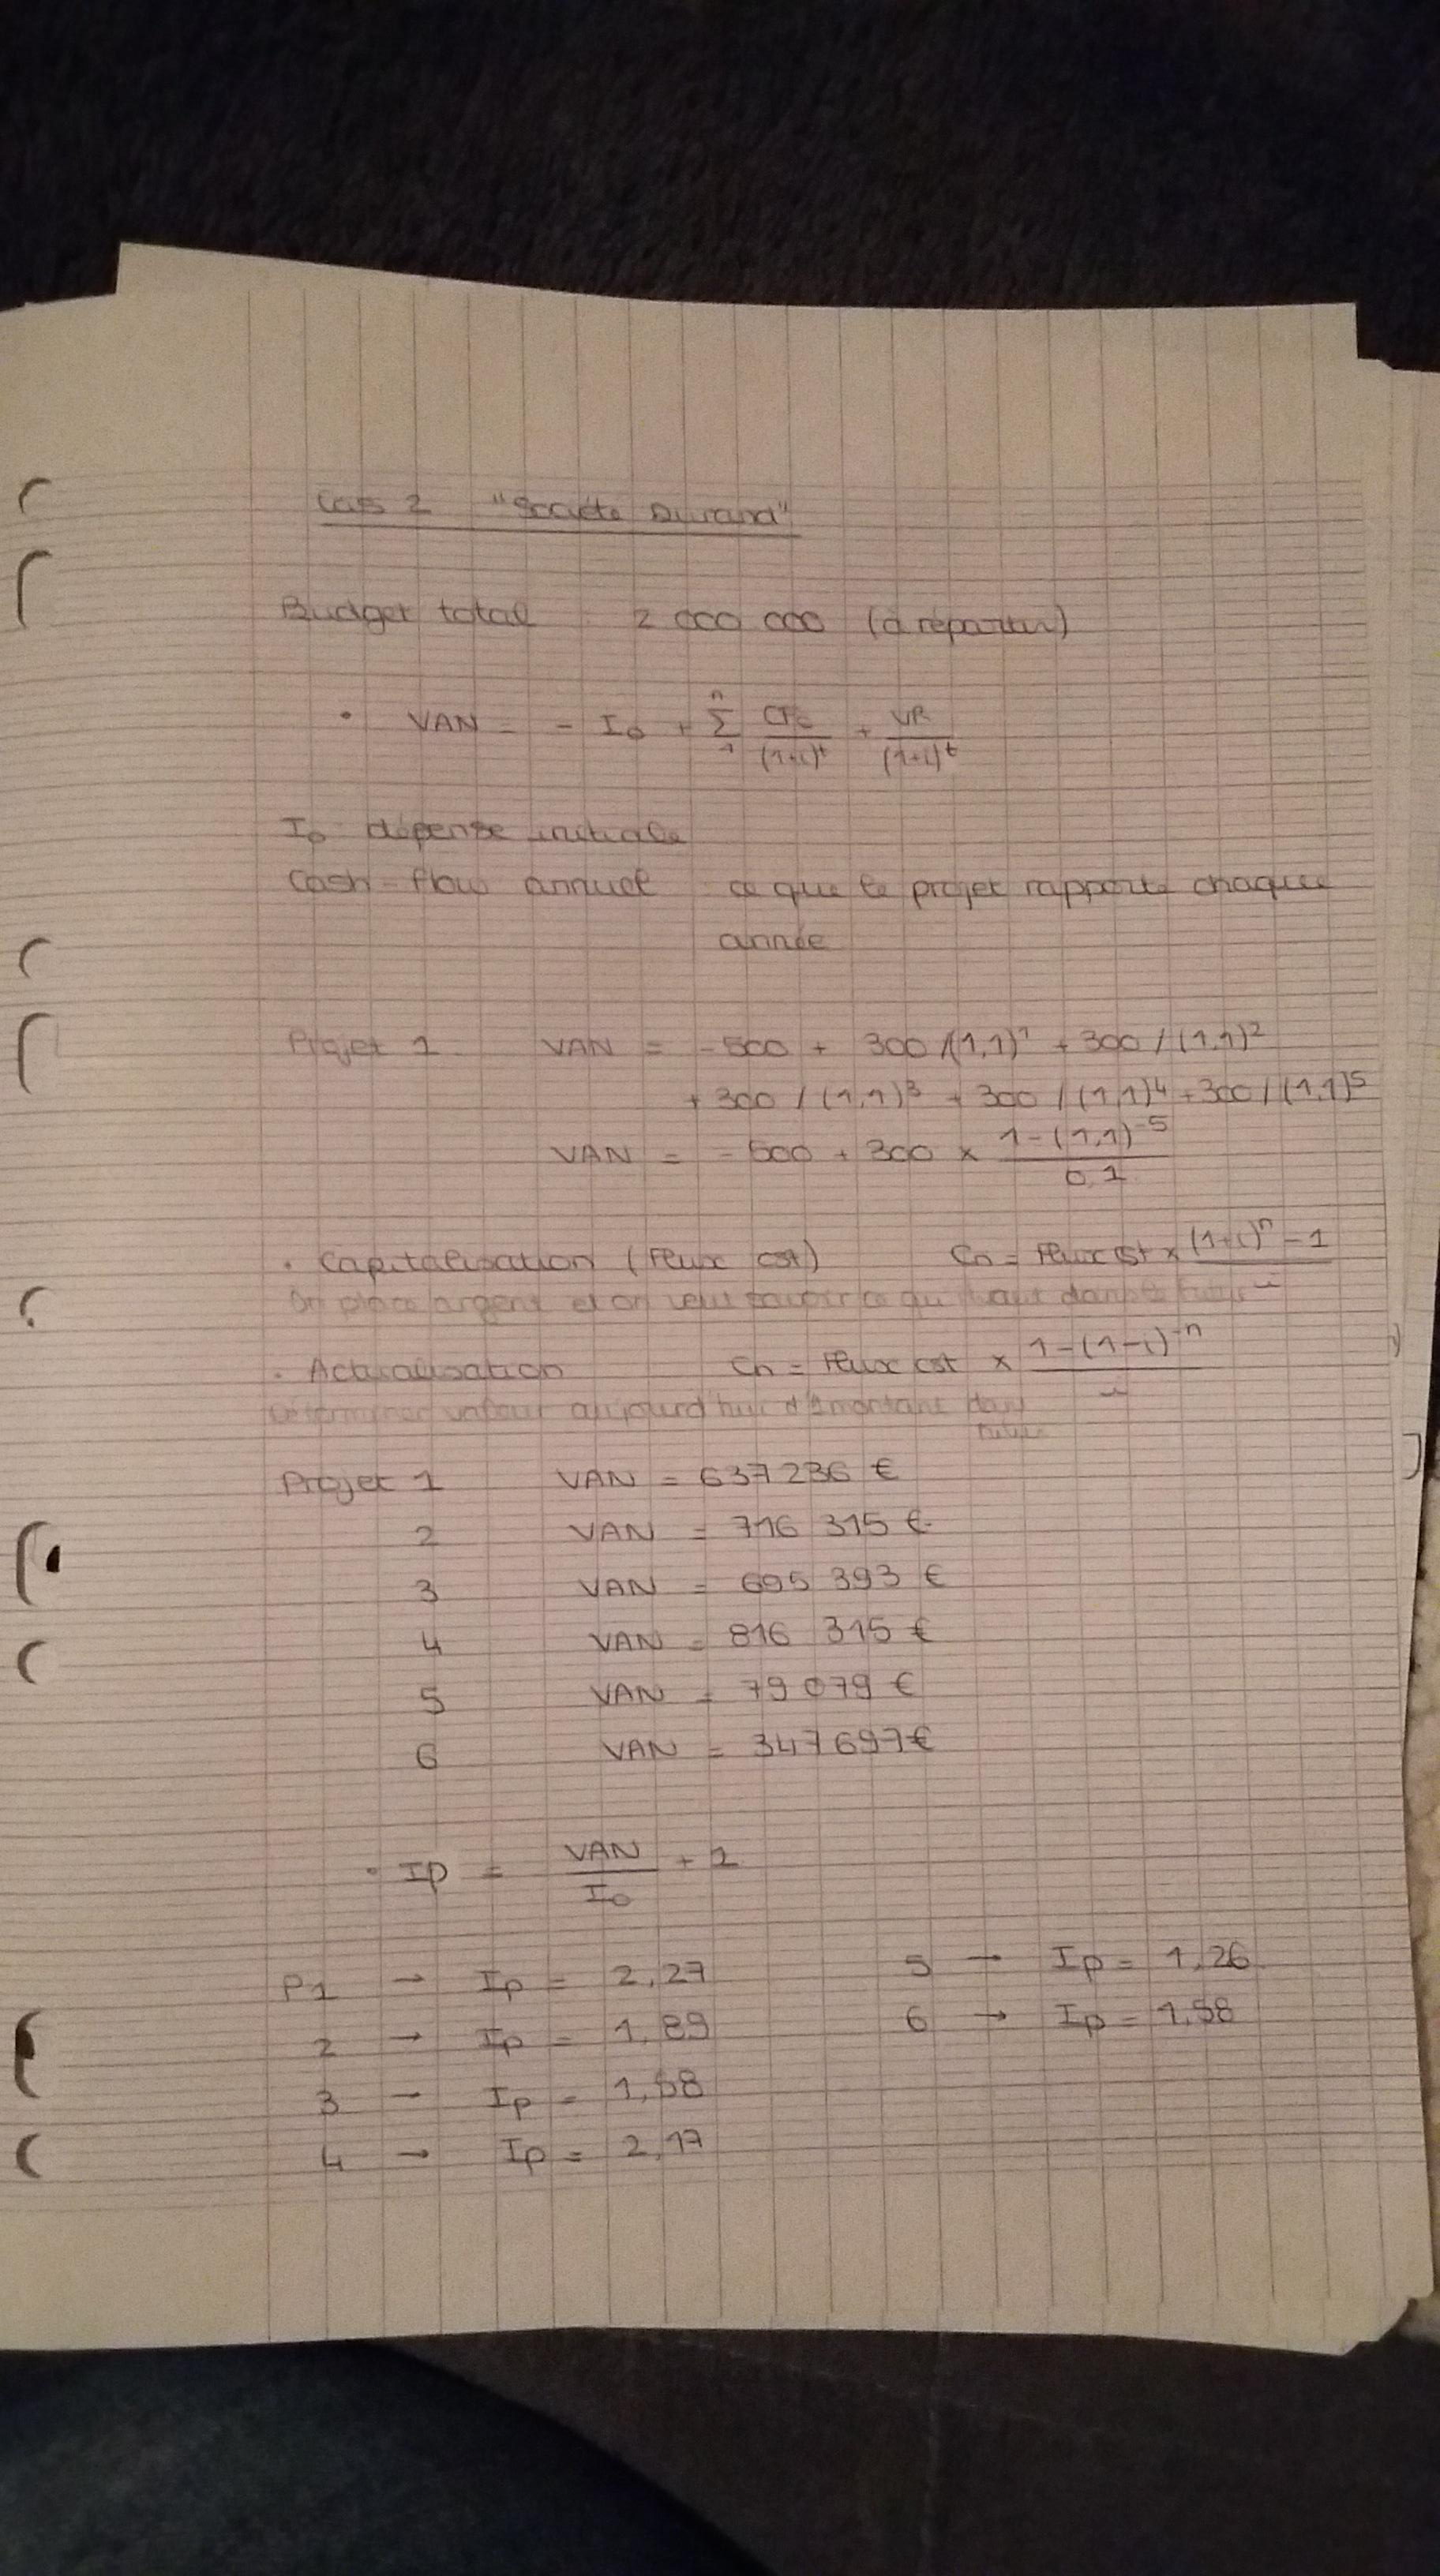 Cas 2 "Société Durand"
Budget total 2 000 000 (à répartir)
• VAN = - I0 + n Σ 1 CFt / (1+i)^t + VR / (1+i)^t
I0 dépense initiale
Cash-flow annuel ce que le projet rapporte chaque
année
Projet 1 VAN = -500 + 300 /(1,1)^1 + 300 / (1,1)^2
+ 300 / (1,1)^3 + 300 / (1,1)^4 + 300 / (1,1)^5
VAN = - 500 + 300 x 1-(1,1)^-5 / 0,1
• Capitalisation (Flux cst) Cn = Flux cst x (1+i)^n - 1 / i
On place argent et on veut savoir ce qu'il vaut dans le
• Actualisation Cn = Flux cst x 1-(1-i)^-n / i
Déterminer valeur aujourd'hui d'1 montant dans
futur
Projet 1 VAN = 637 236 €
2 VAN = 716 315 €
3 VAN = 695 393 €
4 VAN = 816 315 €
5 VAN = 79 079 €
6 VAN = 347 697 €
• Ip = VAN / I0 + 1
P1 → Ip = 2,27
2 → Ip = 1,89
3 → Ip = 1,58
4 → Ip = 2,17
5 → Ip = 1,26
6 → Ip = 1,58